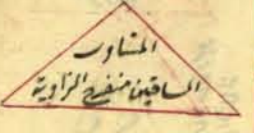 المتساوى
الساقين منفرج الزاوية